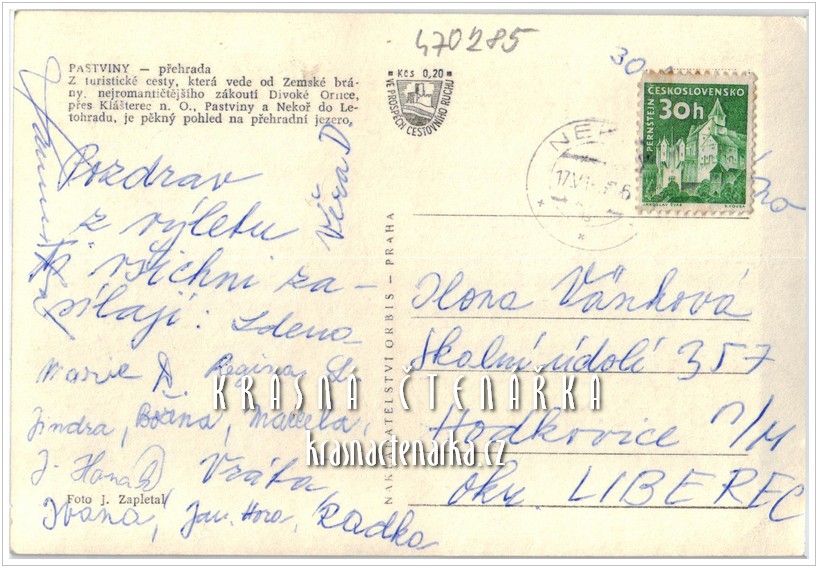 470285
PASTVINY — přehrada
Z turistické cesty, která vede od Zemské brá-
ny, nejromantičtějšího zákoutí Divoké Orlice,
přes Klášterec n. O., Pastviny a Nekoř do Le-
tohradu, je pěkný pohled na přehradní jezero.
Kčs 0,20
VE PROSPĚCH CESTOVNÍHO RUCHU
ČESKOSLOVENSKO
30h
PERNŠTEJN
Pozdrav
z výletu
Věra D.
všichni za-
sílají: Zdena
Marie D. Regina L.
Jindra, Božena, Marcela,
J. Hana Vráťa
Foto J. Zapletal
Ivana, Jar. Hora, Radka
NAKLADATELSTVÍ ORBIS - PRAHA
Ilona Váňková
Skalní údolí 357
Hodkovice n/M
okr. LIBEREC
KRÁSNÁ ČTENÁŘKA
krasnactenarka.cz